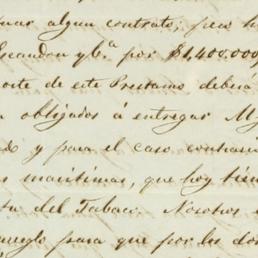 mar algun contrato; pero h
Escandon y C.ª por $1,400.000
orte de este Prestamo deberá
n obligados á entregar M
do y para el caso contrario
s maritimas, que hoy tien
ta del Tabaco. Nosotros
arreglo para que por los do